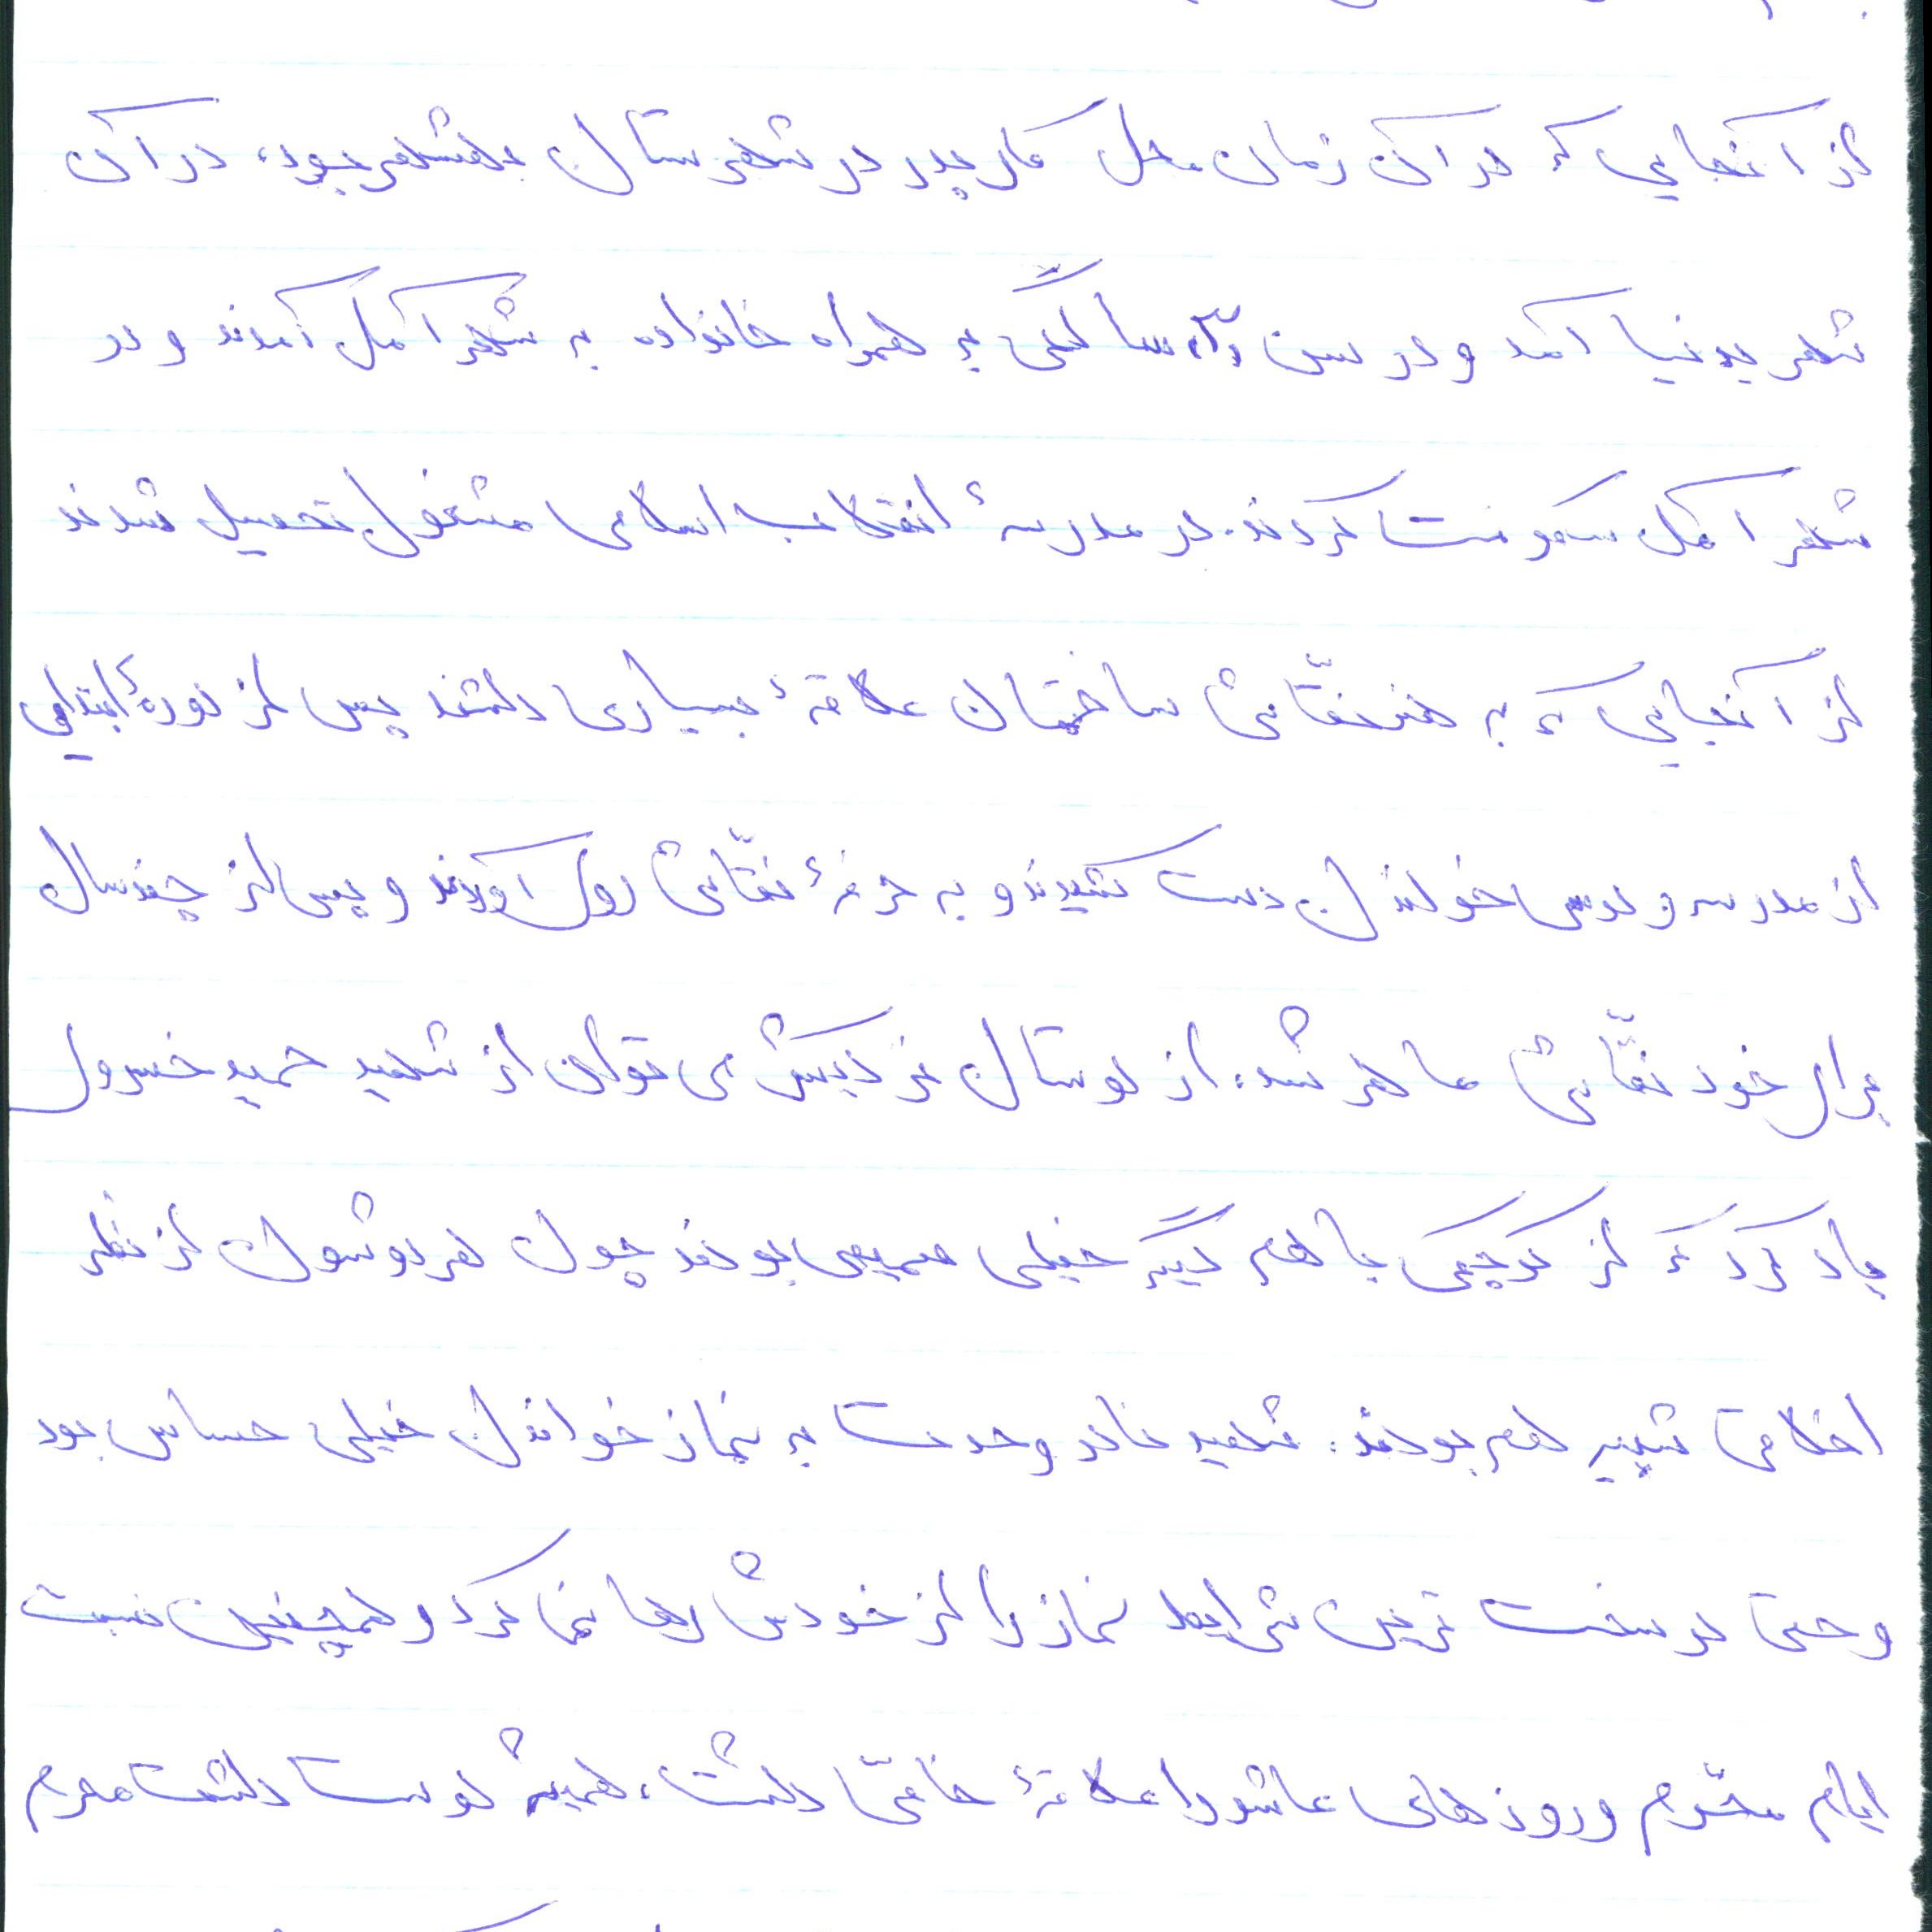 از آنجایی که در آن زمان محل کار پدر در شهرستان بهشهر بود، در آن
شهر بدنیا آمد و در سن سالگی به همراه خانواده به شهر آمل آمدند و در
شهر آمل سکونت کردند. در مدرسهٔ انقلاب اسلامی مشغول تحصیل شدند
از آنجایی که به هنر نقّاشی ساختمان علاقهٔ بسیاری داشتند پس از دورهٔ ابتدایی
از مدرسه و درس خواندن دست کشیدند و به حرفهٔ نقّاشی روی آوردند و پس از چند سال
برای خود نقّاشی ماهر شد. از دوستان نزدیکش می توان از شهید حمید خسروی
یاد کرد که از کوچیکی با هم دیگه خیلی صمیمی بودند چون هر دوشون از نظر
اخلاقی شبیه هم بودند. شهید نادر وحدت به نماز خواندن خیلی حساس بود
و حتی در سخت ترین شرایط نماز را از خودش رها نمی کرد و همچنین نسبت
ایام محرّم و روزهای عاشورا علاقهٔ خاصّی داشت، همیشه دوست داشت محرم